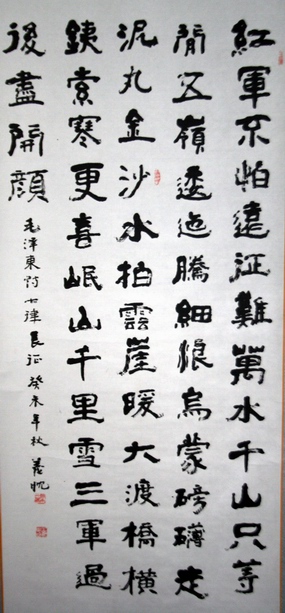 紅軍不怕遠征難萬水千山只等
閒五嶺逶迤騰細浪烏蒙磅礴走
泥丸金沙水拍雲崖暖大渡橋橫
銕索寒更喜岷山千里雪三軍過
後盡開顏
毛澤東詩七律長征 癸未年秋